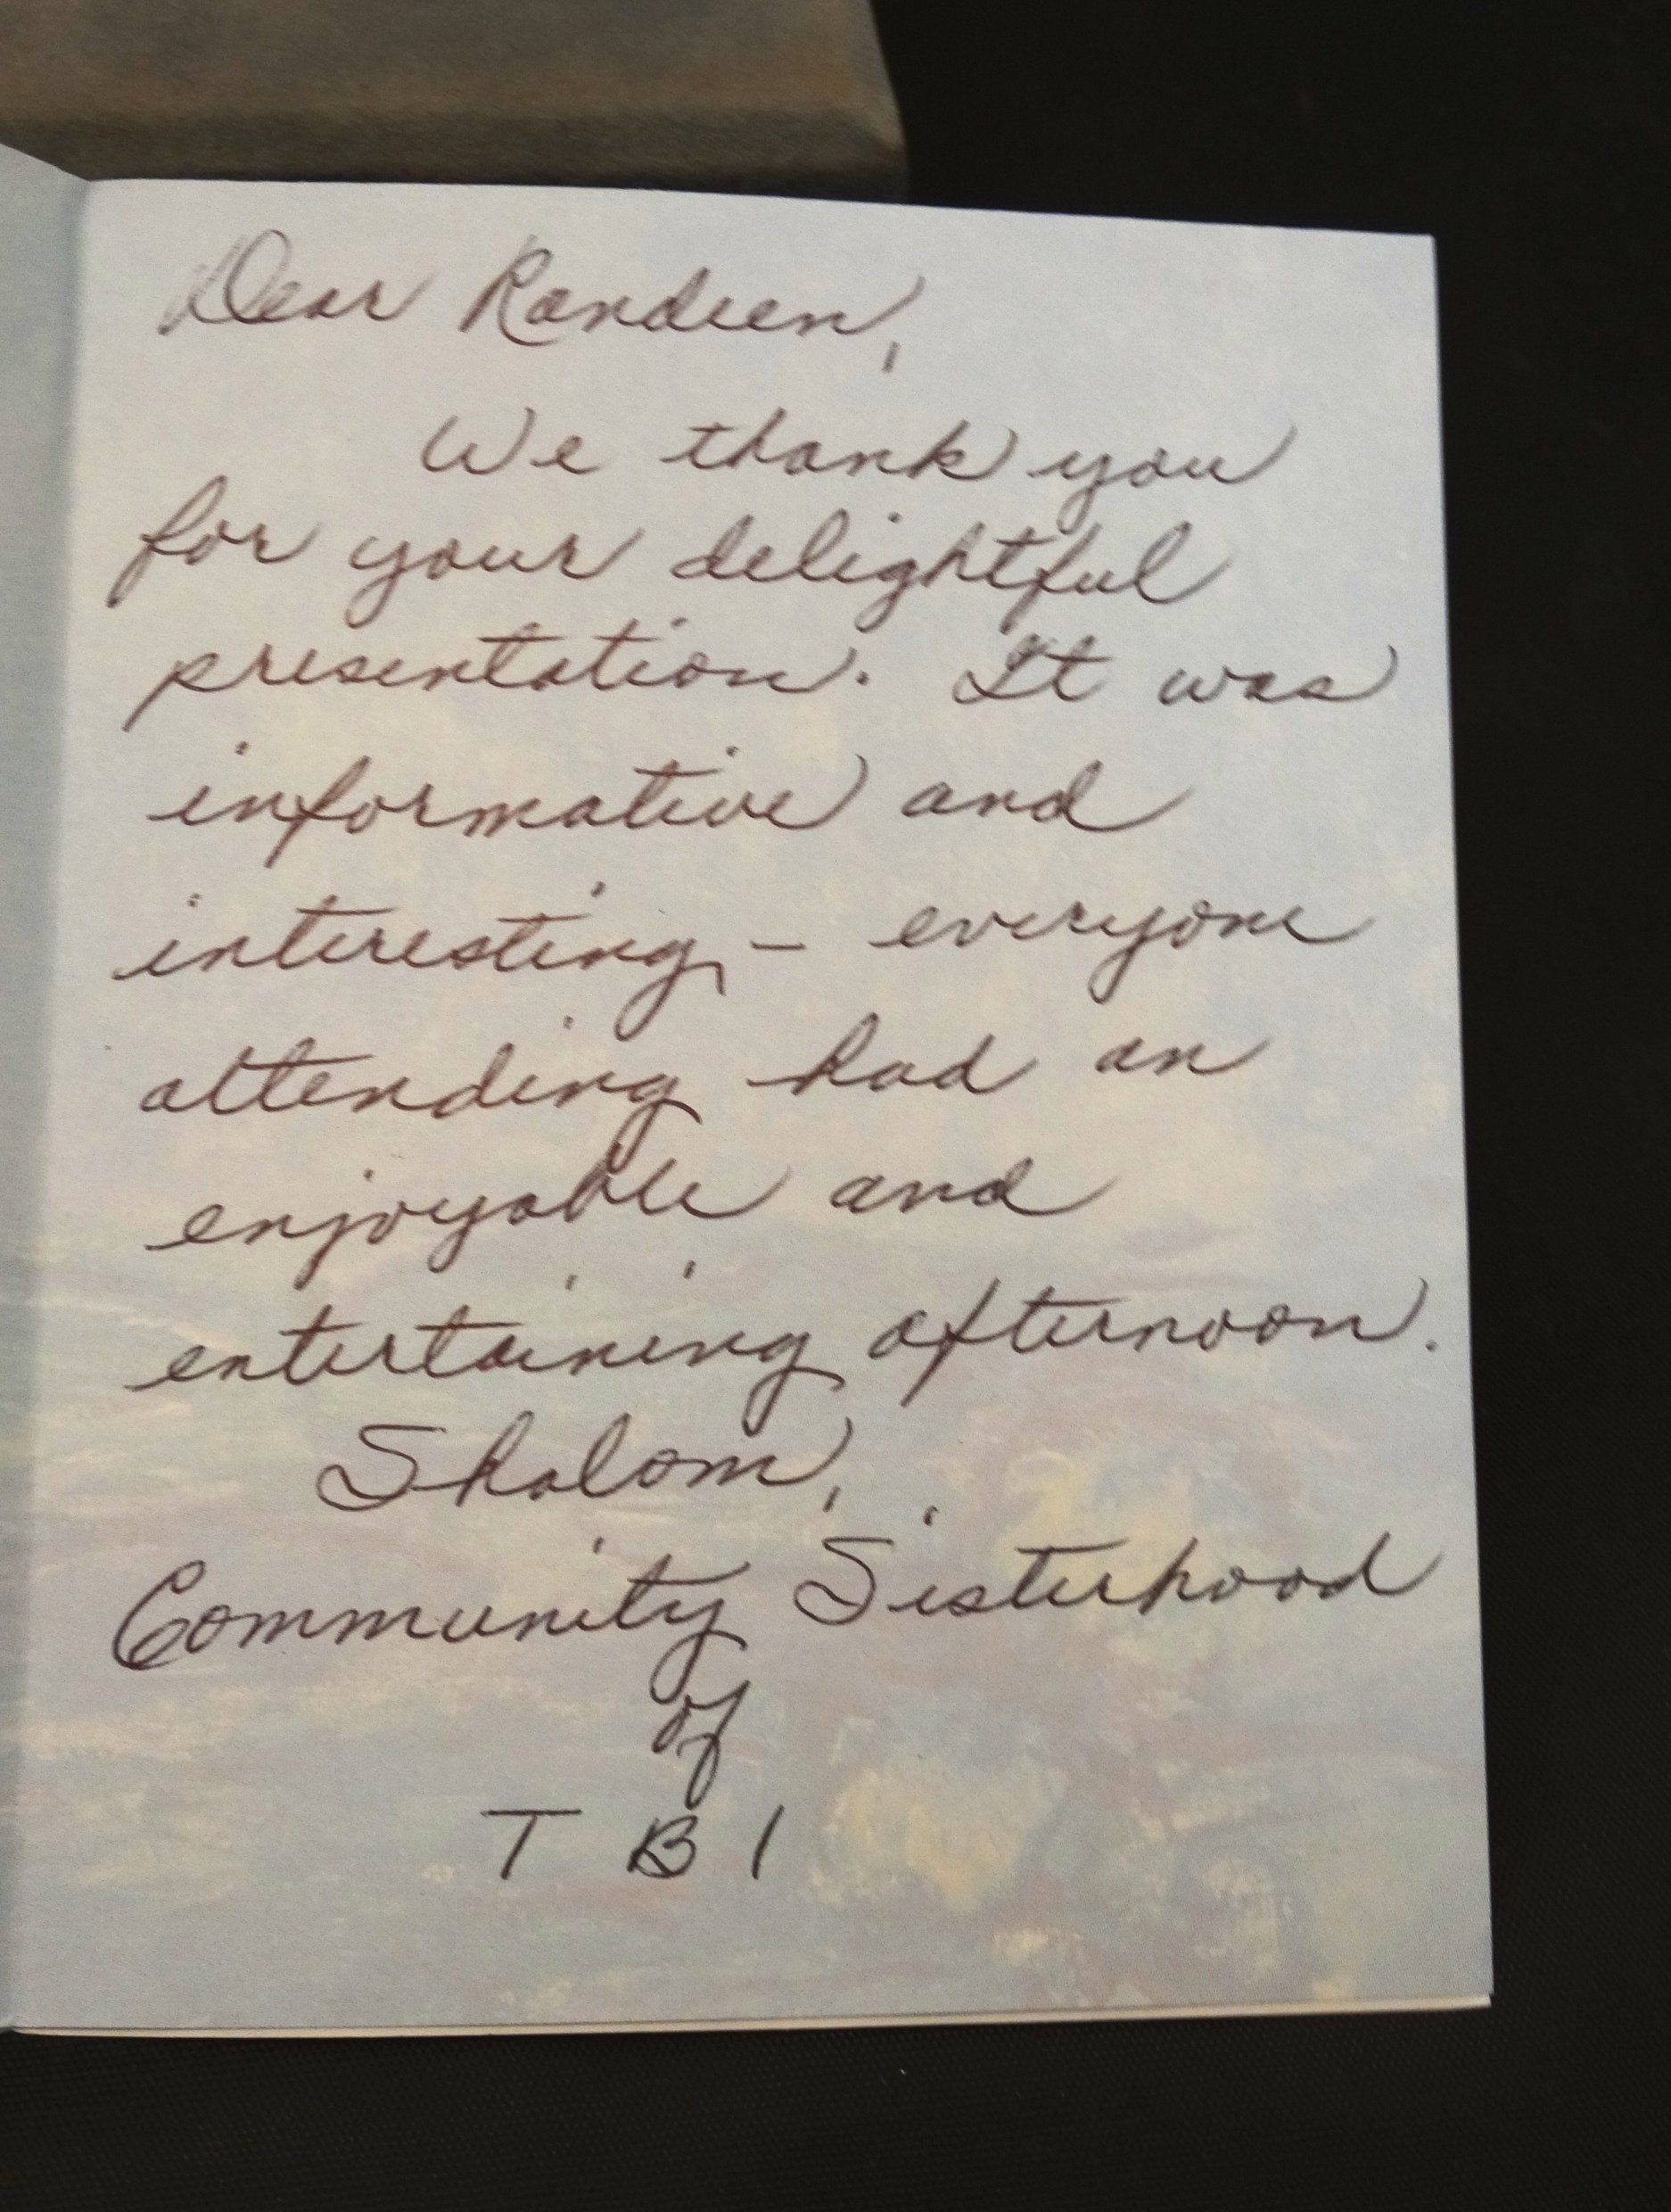 Dear Randeen,
We thank you
for your delightful
presentation. It was
informative and
interesting, – everyone
attending had an
enjoyable and
entertaining afternoon.
Shalom,
Community Sisterhood
of
T B I